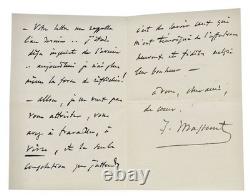 - Votre lettre me rappelle
déjà inquiet de l'avenir
.. aujourd'hui je n'ai plus
même la force de réfléchir!
- allons, je ne veux pas
vous attrister, vous
avez à travailler, à
vivre, et la seule
consolation que j'attends
est de savoir ceux qui
m'ont témoigné de l'affection
heureux et fidèles malgré
leur bonheur -
à vous, cher ami,
de cœur.
J. Massenet